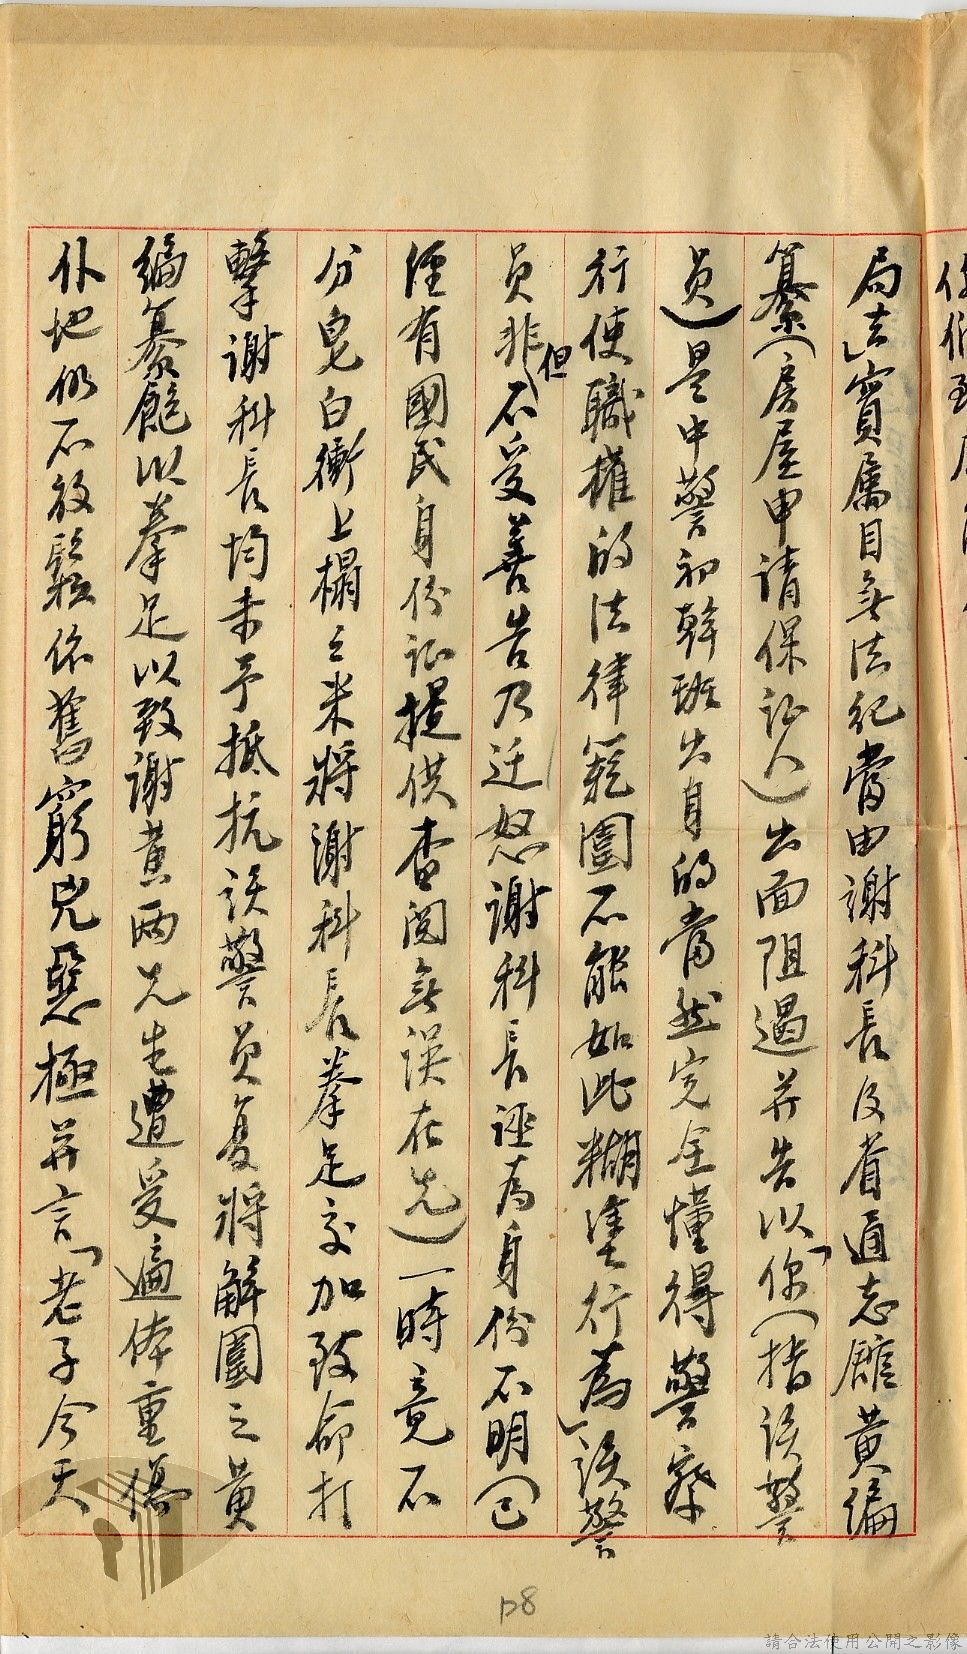 局去」實屬目無法紀當由謝科長及省通志館黃編
纂(房屋申請保証人)出面阻遏并告以「你(指該警
員)是中警初幹班出身的當然完全懂得警察
行使職權的法律範圍不能如此糊塗行為」該警
員非但不受善告乃迁怒謝科長誣為身份不明(已
經有國民身份証提供查閱無误在先)一時竟不
分皂白衝上榻々米將謝科長拳足交加致命打
擊謝科長均未予抵抗該警員复將解圍之黃
編纂飽以拳足以致謝黃两先生遭受遍体重傷
仆地仍不放鬆依舊窮兇惡極并言「老子今天
P8
請合法使用公開之影像